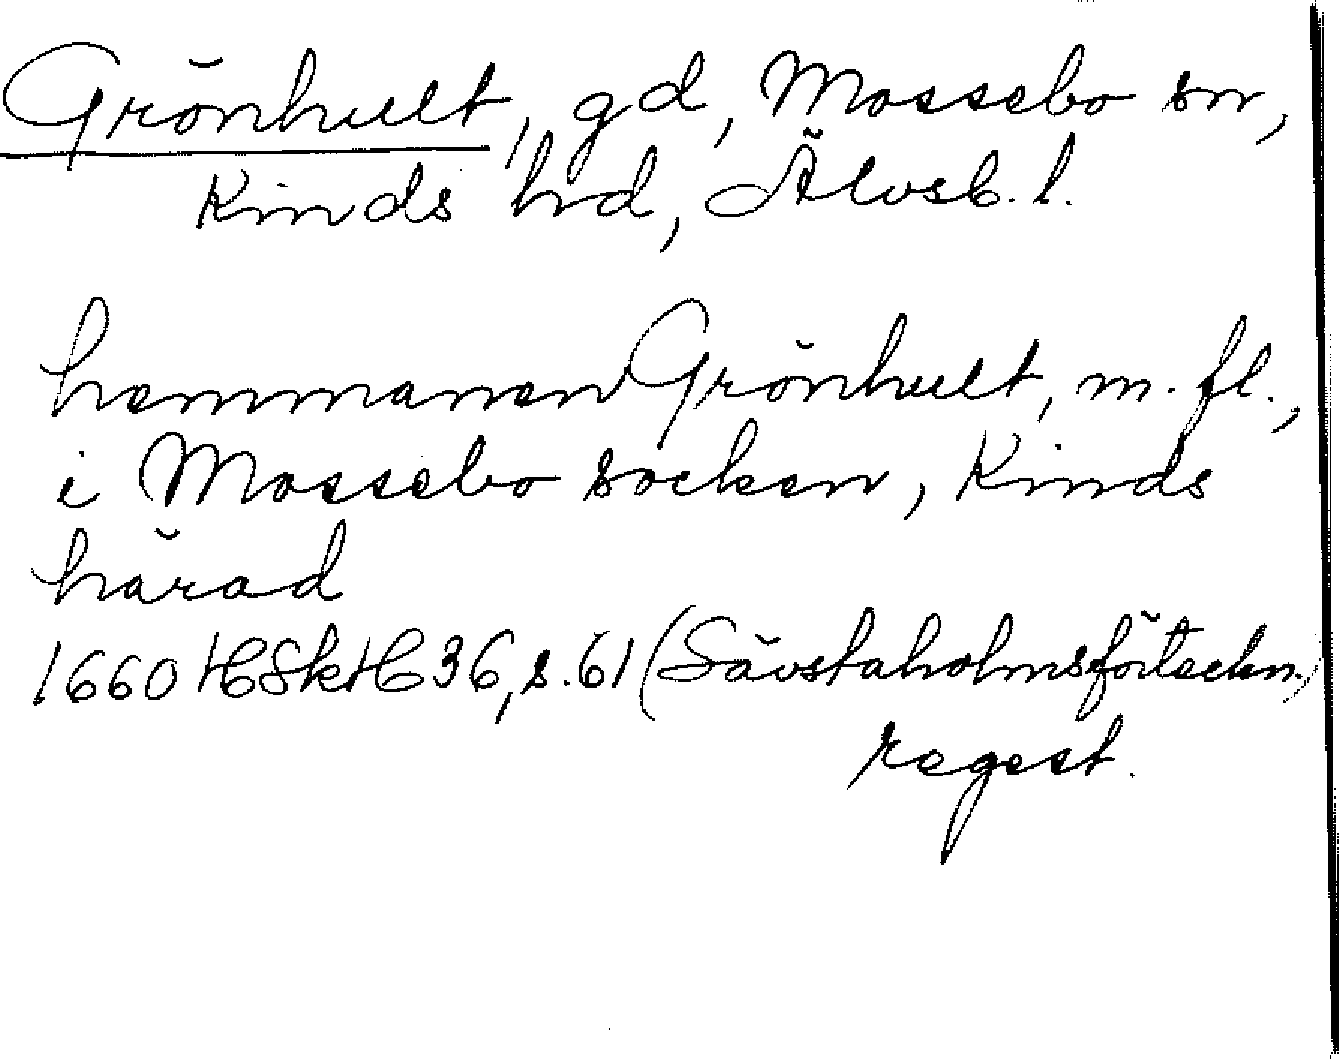 Grönhult, gd, Mossebo sn,
Kinds hd, Älvsb. l.
hemmanen Grönhult, m. fl.,
i Mossebo socken, Kinds
härad
1660 HSkH 36, s. 61 (Sävstaholmsförteckn.)
regest.